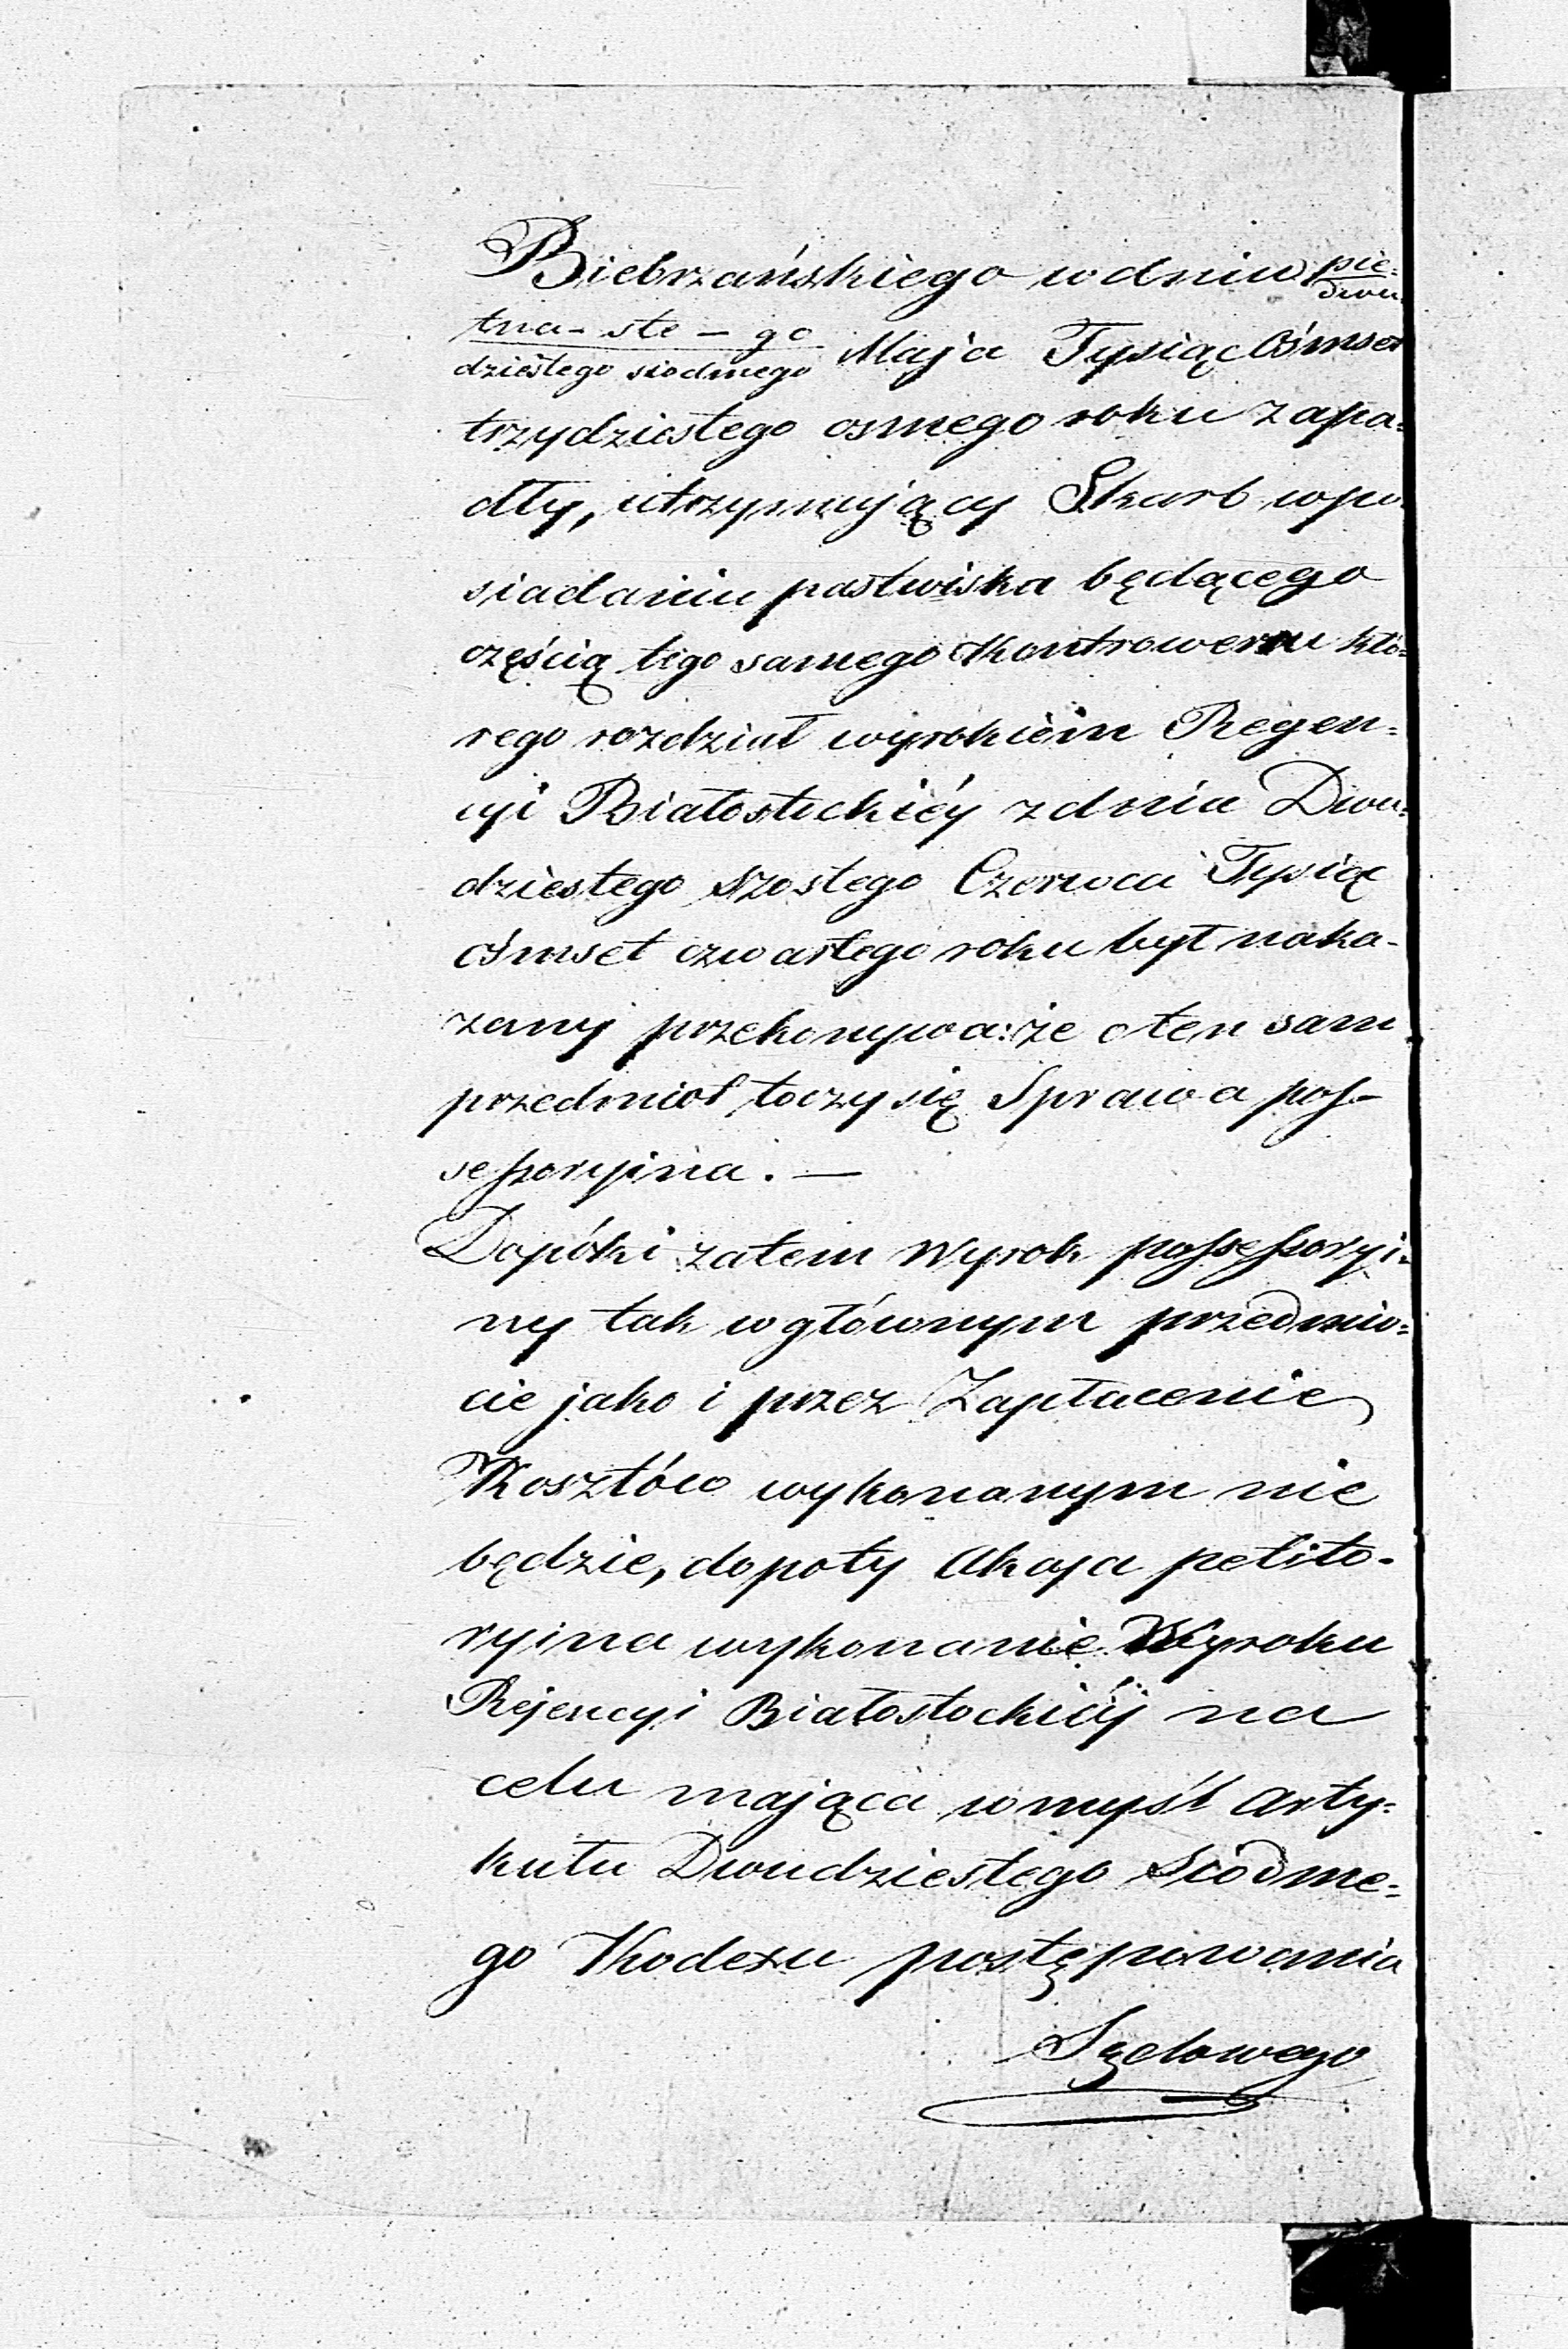 Biebrzańskiego w dniu pię-/dwu-
tna-ste-go/dziestego siodmego Maja Tysiąc Ośmset
trzydziestego osmego roku zapa-
dły, utrzymujący Skarb w po-
siadaniu pastwiska będącego
częścią tego samego Kontrowersu któ-
rego rozdział wyrokiem Regen-
cyi Białostockiéy z dnia Dwu-
dziestego szostego Czerwca Tysiąc
ośmset czwartego roku był naka-
zany przekonywa: że o ten sam
przedmiot toczy się Sprawa pos-
sessoryina. —
Dopóki zatem Wyrok possessoryi-
ny tak w głównym przedmio-
cie jako i przez Zapłacenie
Kosztów wykonanym nie
będzie, dopoty Akcya petito-
ryina wykonanie Wyroku
Rejencyi Białostockiéj na
celu mająca w myśl Arty-
kułu Dwudziestego Siódme-
go Kodexu postępowania
Sądowego